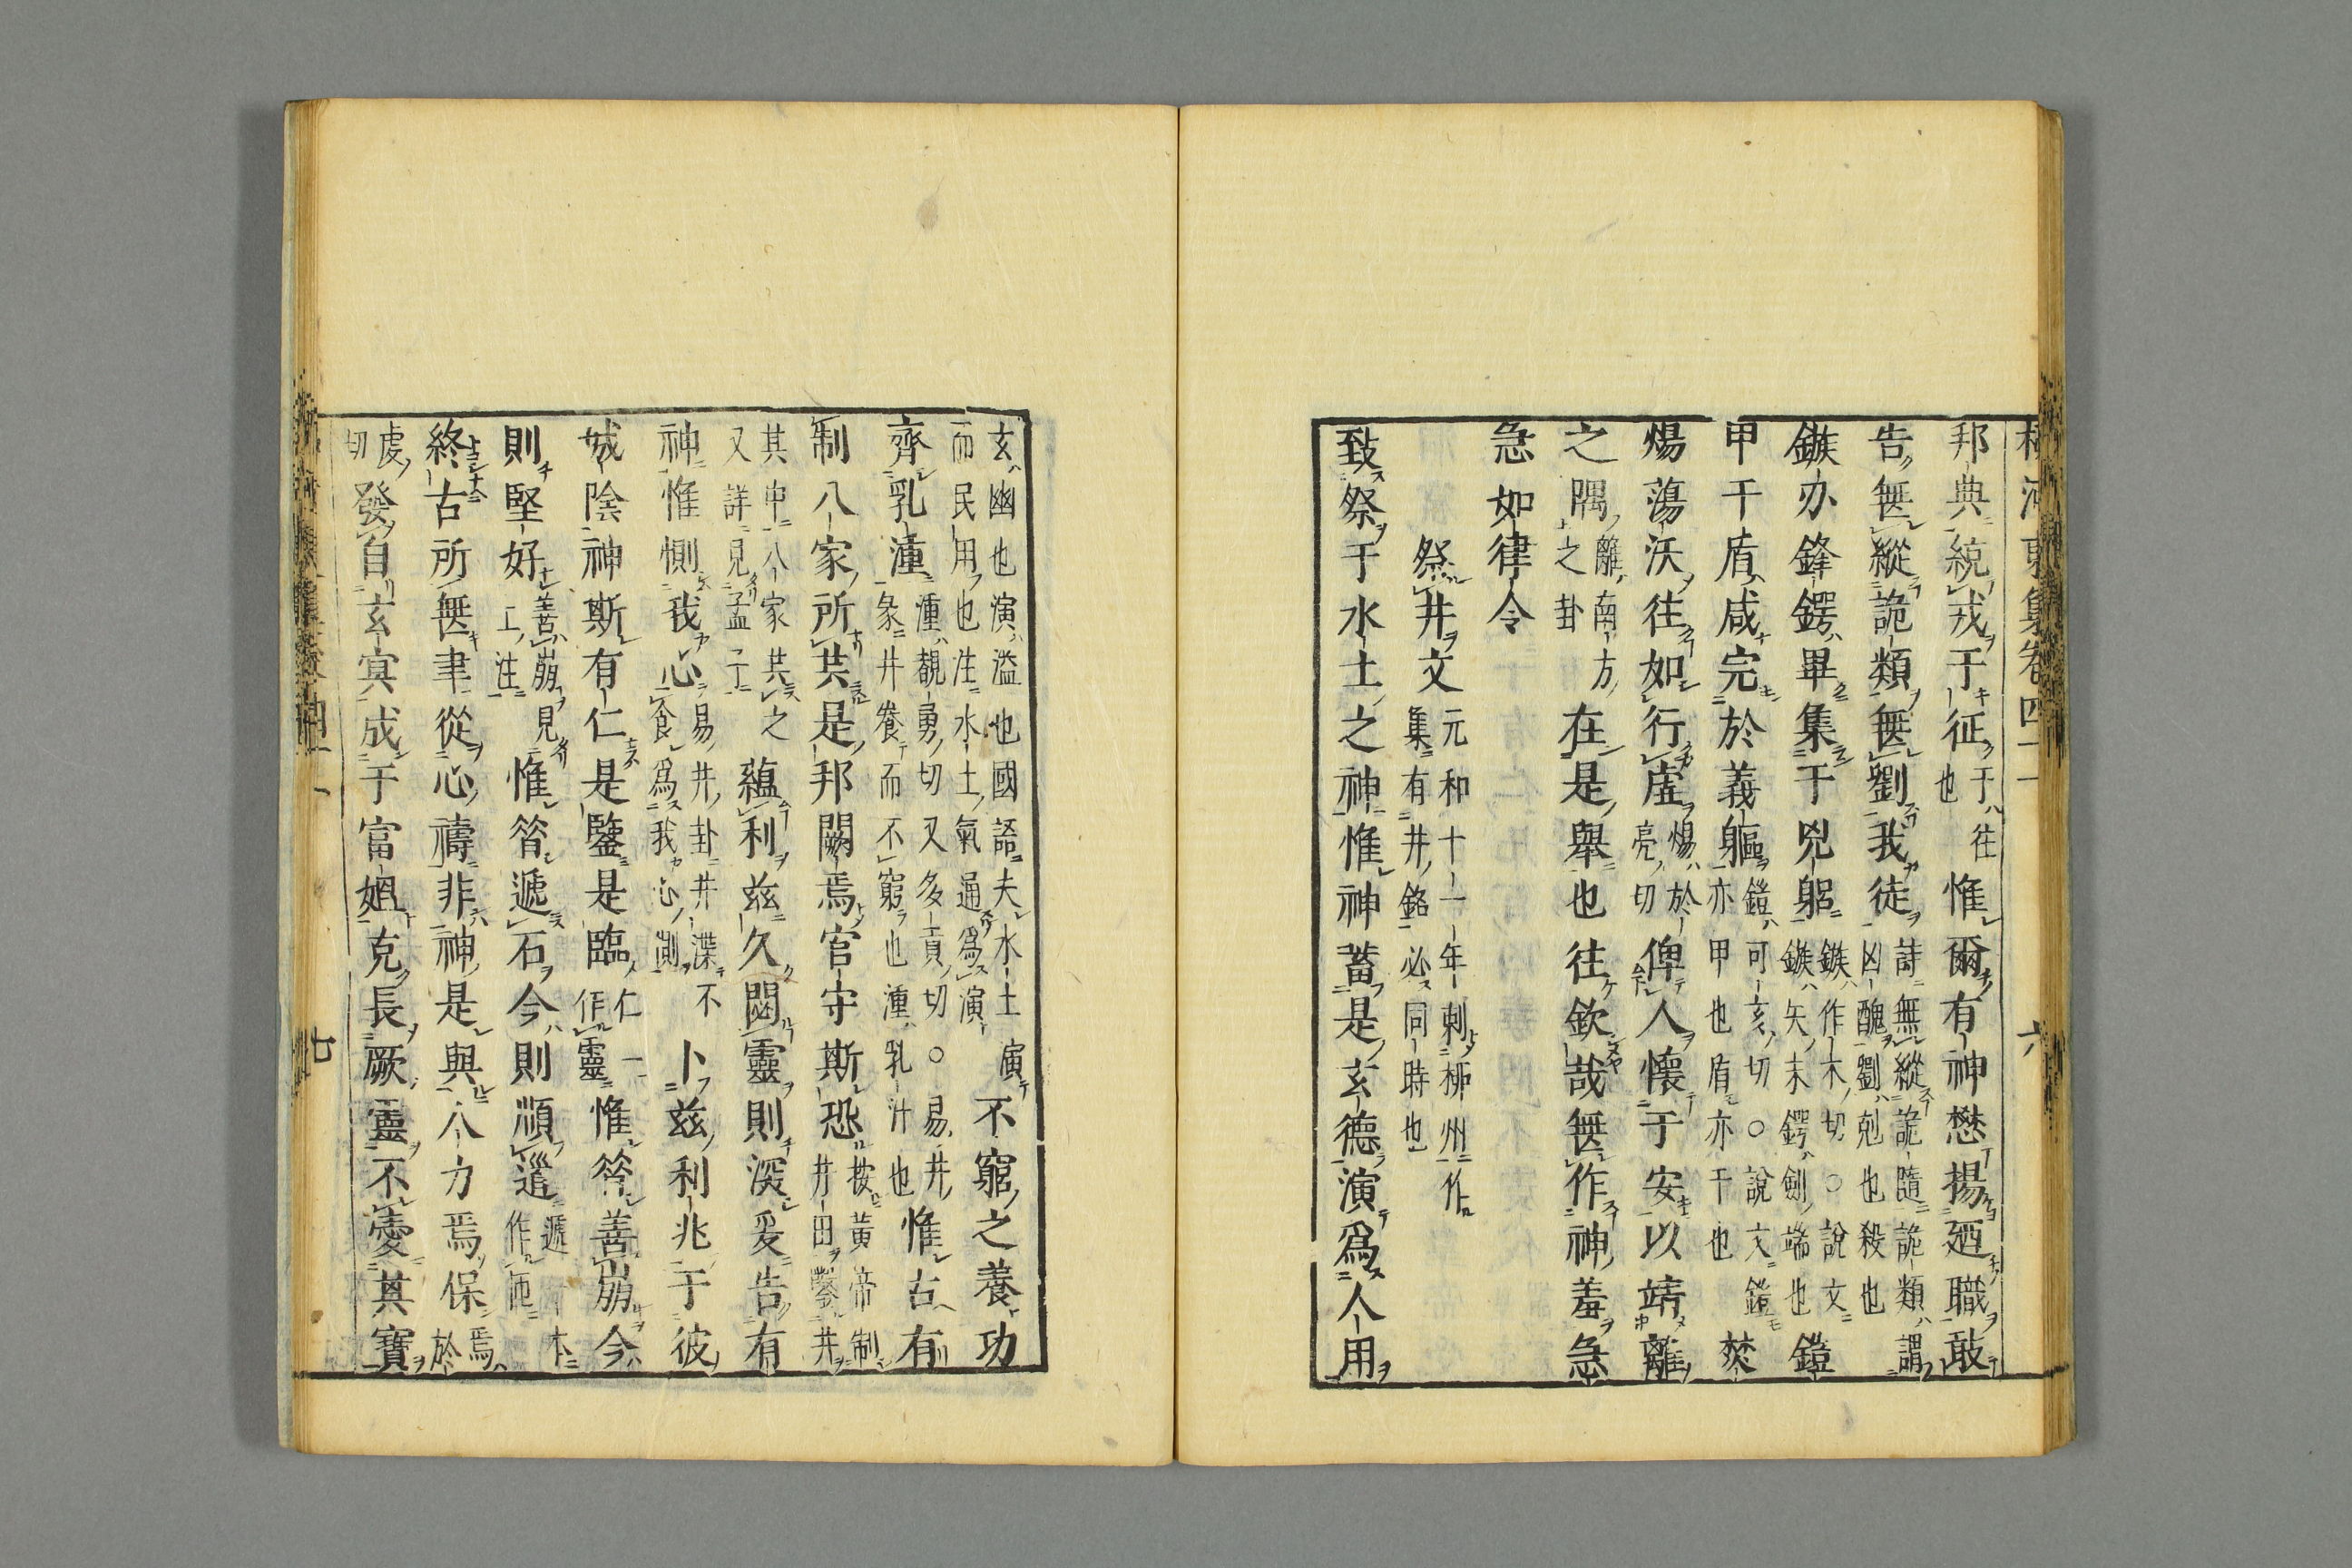 邦典統戎于征于往也惟爾有神懋揚廼職敢
告無縱詭類無劉我徒詩無縱詭隨詭類謂凶醜劉剋也殺也
鏃刅鋒鍔畢集于兇躬鏃作木切○說文鏃矢末鍔劍端也鎧
甲干盾咸完於義軀鎧可亥切○說文鎧亦甲也盾亦干也焚
煬蕩沃往如行虛煬於亮切俾人懷于安以靖離
之隅離南方之卦在是舉也往欽哉無作神羞急
急如律令
祭井文元和十一年刺柳州作集有井銘必同時也
致祭于水土之神惟神蓄是玄德演爲人用
玄幽也演溢也國語夫水土演而民用也注水土氣通爲演不窮之養功
齊乳湩湩覩勇切又多貢切○易井彖井養而不窮也湩乳汁也惟古有
制八家所共是邦闕焉官守斯恐按黃帝制井田鑿井
其中八家共之又詳見孟子蘊利茲久閟靈則深爰告有
神惟惻我心易井卦井渫不食爲我心惻卜茲利兆于彼
城陰神斯有仁是鑒是臨仁一作靈惟筮善崩今
則堅好善崩見上注惟筮遞石今則順道遞一本作砸
終古所無聿從心禱非神是與人力焉保焉於
虔切發自玄冥成于富媼克長厥靈不愛其寶